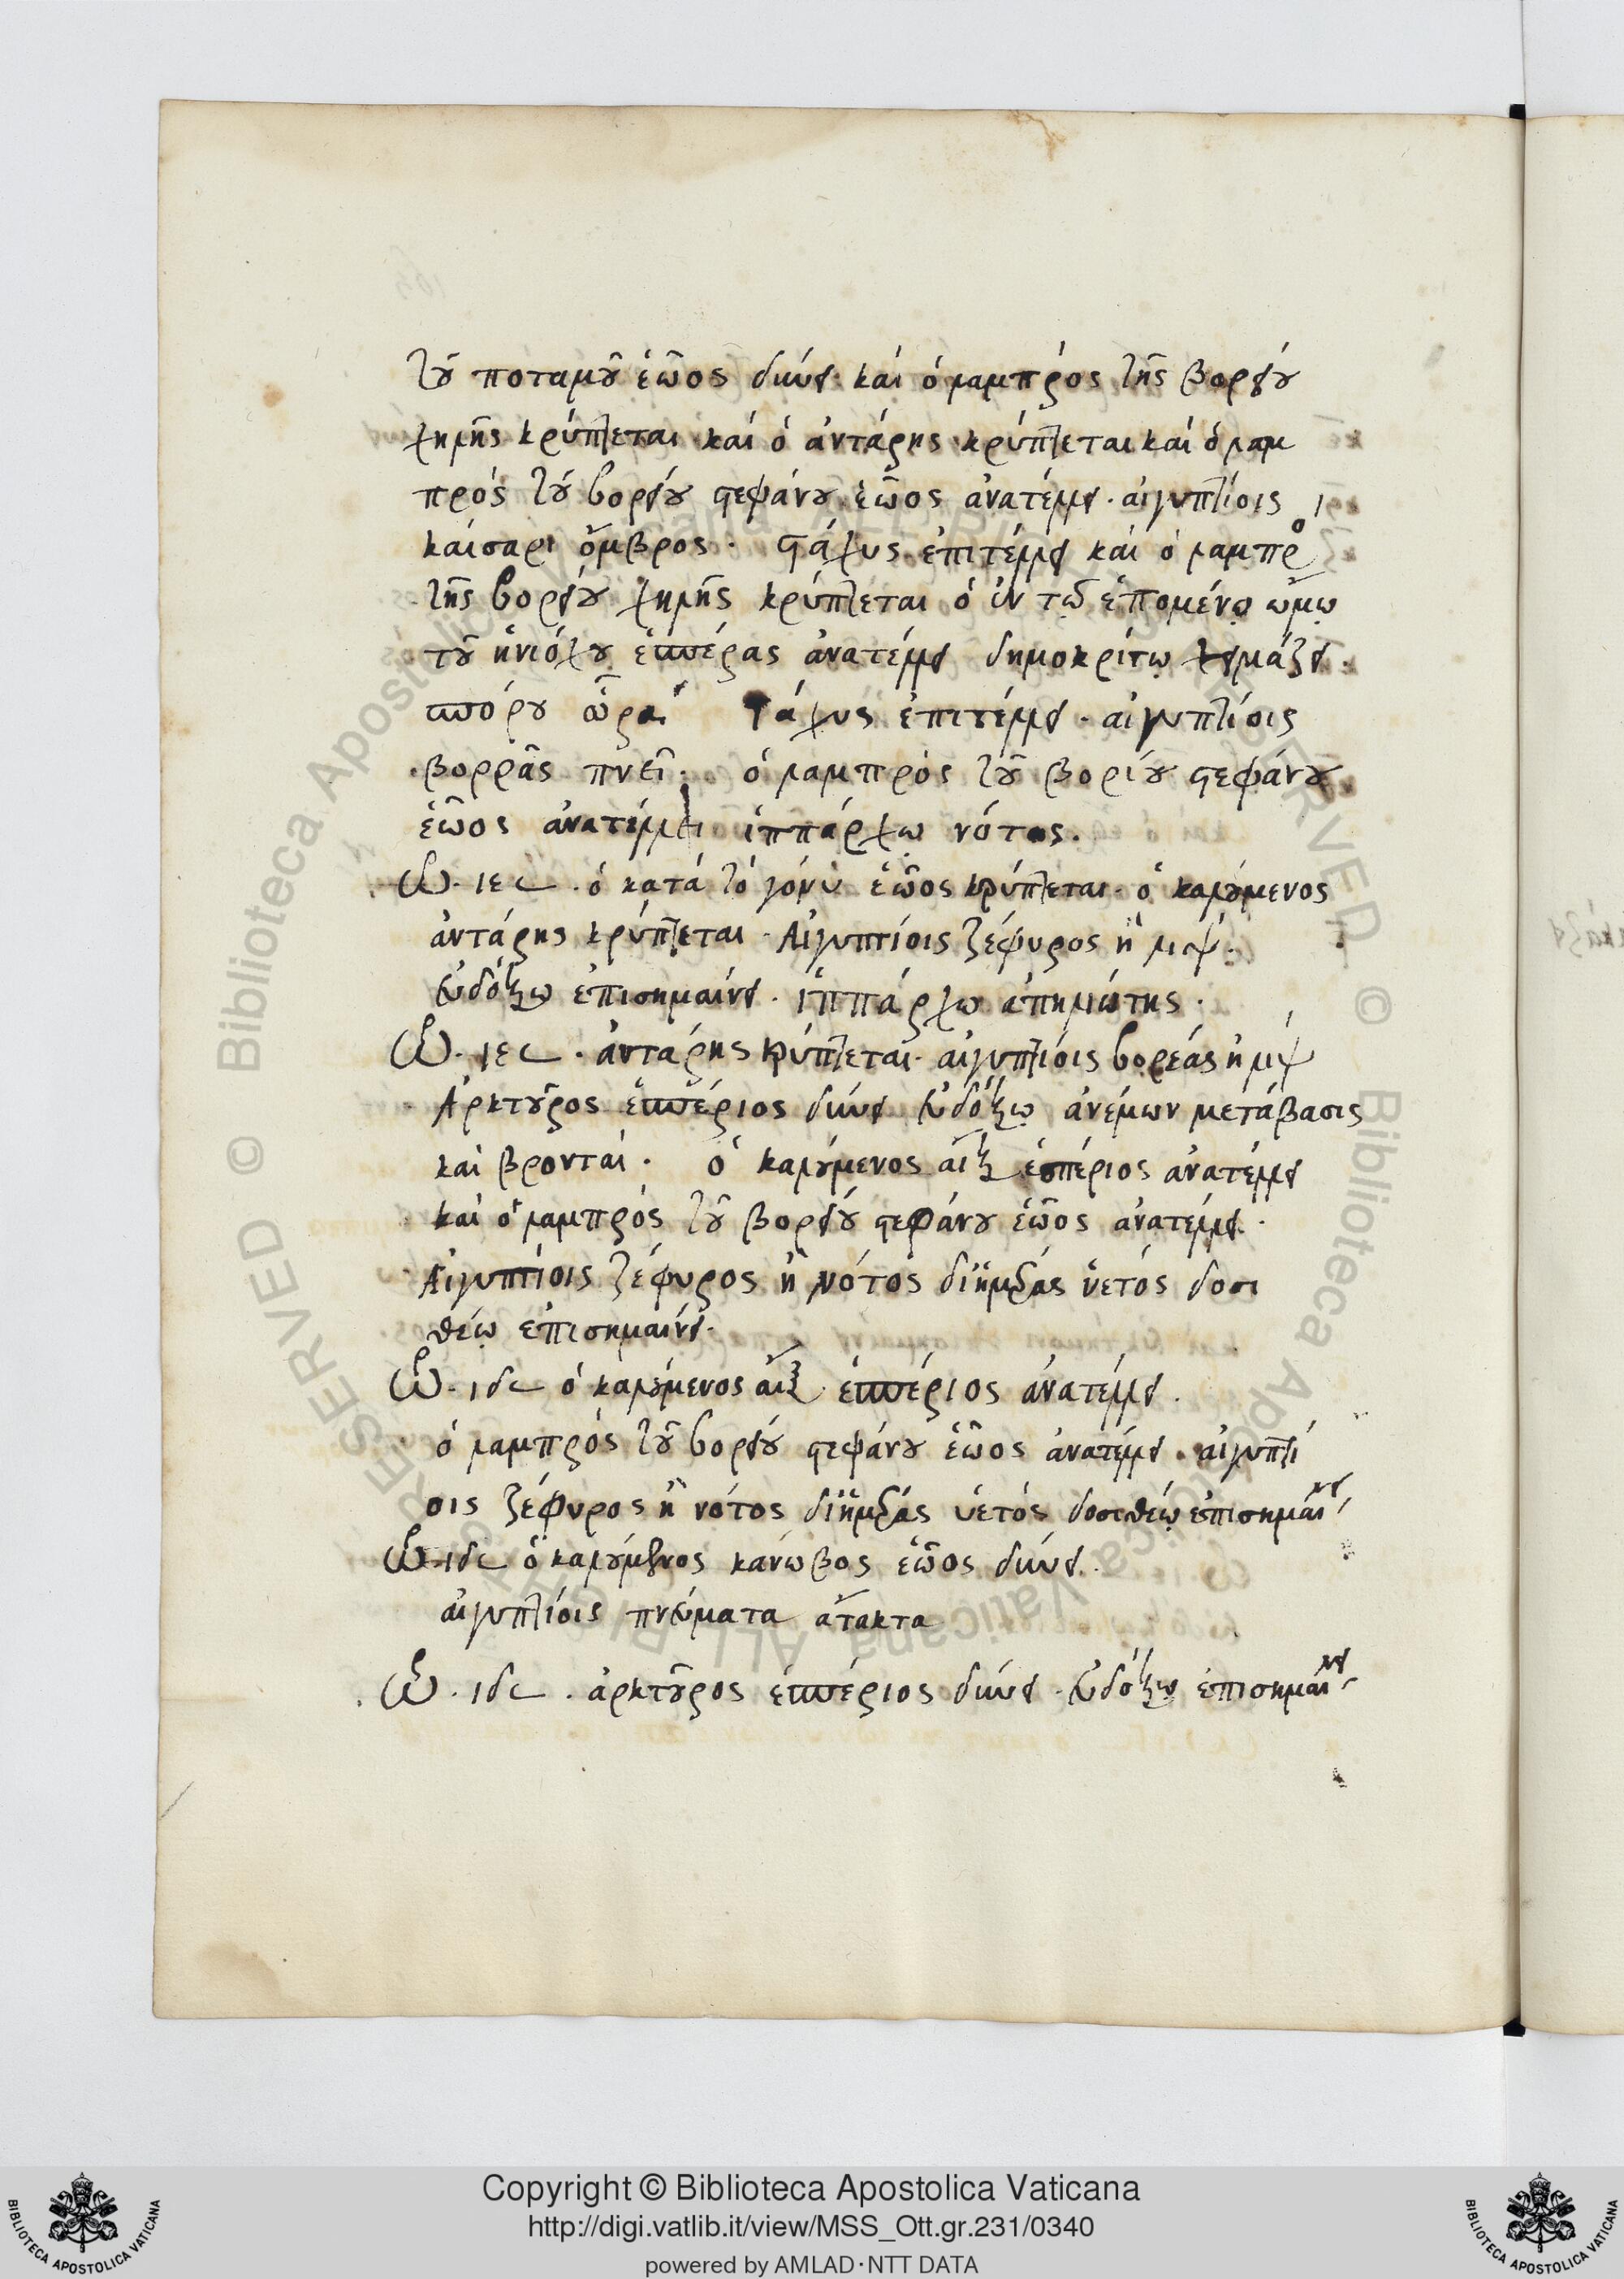 τοῦ ποταμοῦ ἑῶος δύνει. καὶ ὁ λαμπρὸς τῆς βορείου
χηλῆς κρύπτεται καὶ ὁ ἀντάρης κρύπτεται καὶ ὁ λαμ
πρὸς τοῦ βορείου στεφάνου ἑῶος ἀνατέλλει. αἰγυπτίοις
καίσαρι ὄμβρος. στάχυς ἐπιτέλλει καὶ ὁ λαμπρο
τῆς βορείου χηλῆς κρύπτεται ὁ ἐν τῷ ἑπομένῳ ὤμῳ
τοῦ ἡνιόχου ἑσπέρας ἀνατέλλει δημοκρίτῳ χειμάζει.
σπόρου ὥρα στάχυς ἐπιτέλλει. αἰγυπτίοις
βορρᾶς πνεῖ. ὁ λαμπρὸς τοῦ βορίου στεφάνου
ἑῶος ἀνατέλλει ἱππάρχω νότος.
ὡρ. ιε 𐅵. ὁ κατὰ τὸ γόνυ ἑῶος κρύπτεται. ὁ καλούμενος
ἀντάρης κρύπτεται. Αἰγυπτίοις ζέφυρος ἢ λιψ.
εὐδόξω ἐπισημαίνει. ἱππάρχω ἀπηλιώτης.
ὡρ. ιε 𐅵. ἀντάρης κρύπτεται. αἰγυπτίοις βορέας ἢ λιψ
Ἀρκτοῦρος ἑσπέριος δύνει εὐδόξω ἀνέμων μετάβασις
καὶ βρονταί. ὁ καλούμενος αἲξ ἑσπέριος ἀνατέλλει
καὶ ὁ λαμπρὸς τοῦ βορείου στεφάνου ἑῶος ἀνατέλλει.
Αἰγυπτίοις ζέφυρος ἢ νότος δι' ἡμέρας ὑετός δοσι
θέῳ ἐπισημαίνει.
ὡρ. ιδ 𐅵 ὁ καλούμενος αἲξ ἑσπέριος ἀνατέλλει.
ὁ λαμπρὸς τοῦ βορείου στεφάνου ἑῶος ἀνατέλλει. αἰγυπτί
οις ζέφυρος ἢ νότος δι' ἡμέρας ὑετός δοσιθέῳ ἐπισημαίνει
ὡρ. ιδ 𐅵 ὁ καλούμενος κάνωβος ἑῶος δύνει.
αἰγυπτίοις πνεύματα ἄτακτα
ὡρ. ιδ 𐅵. ἀρκτοῦρος ἑσπέριος δύνει. εὐδόξῳ ἐπισημαίνει
Copyright © Biblioteca Apostolica Vaticana
http://digi.vatlib.it/view/MSS_Ott.gr.231/0340
powered by AMLAD·NTT DATA